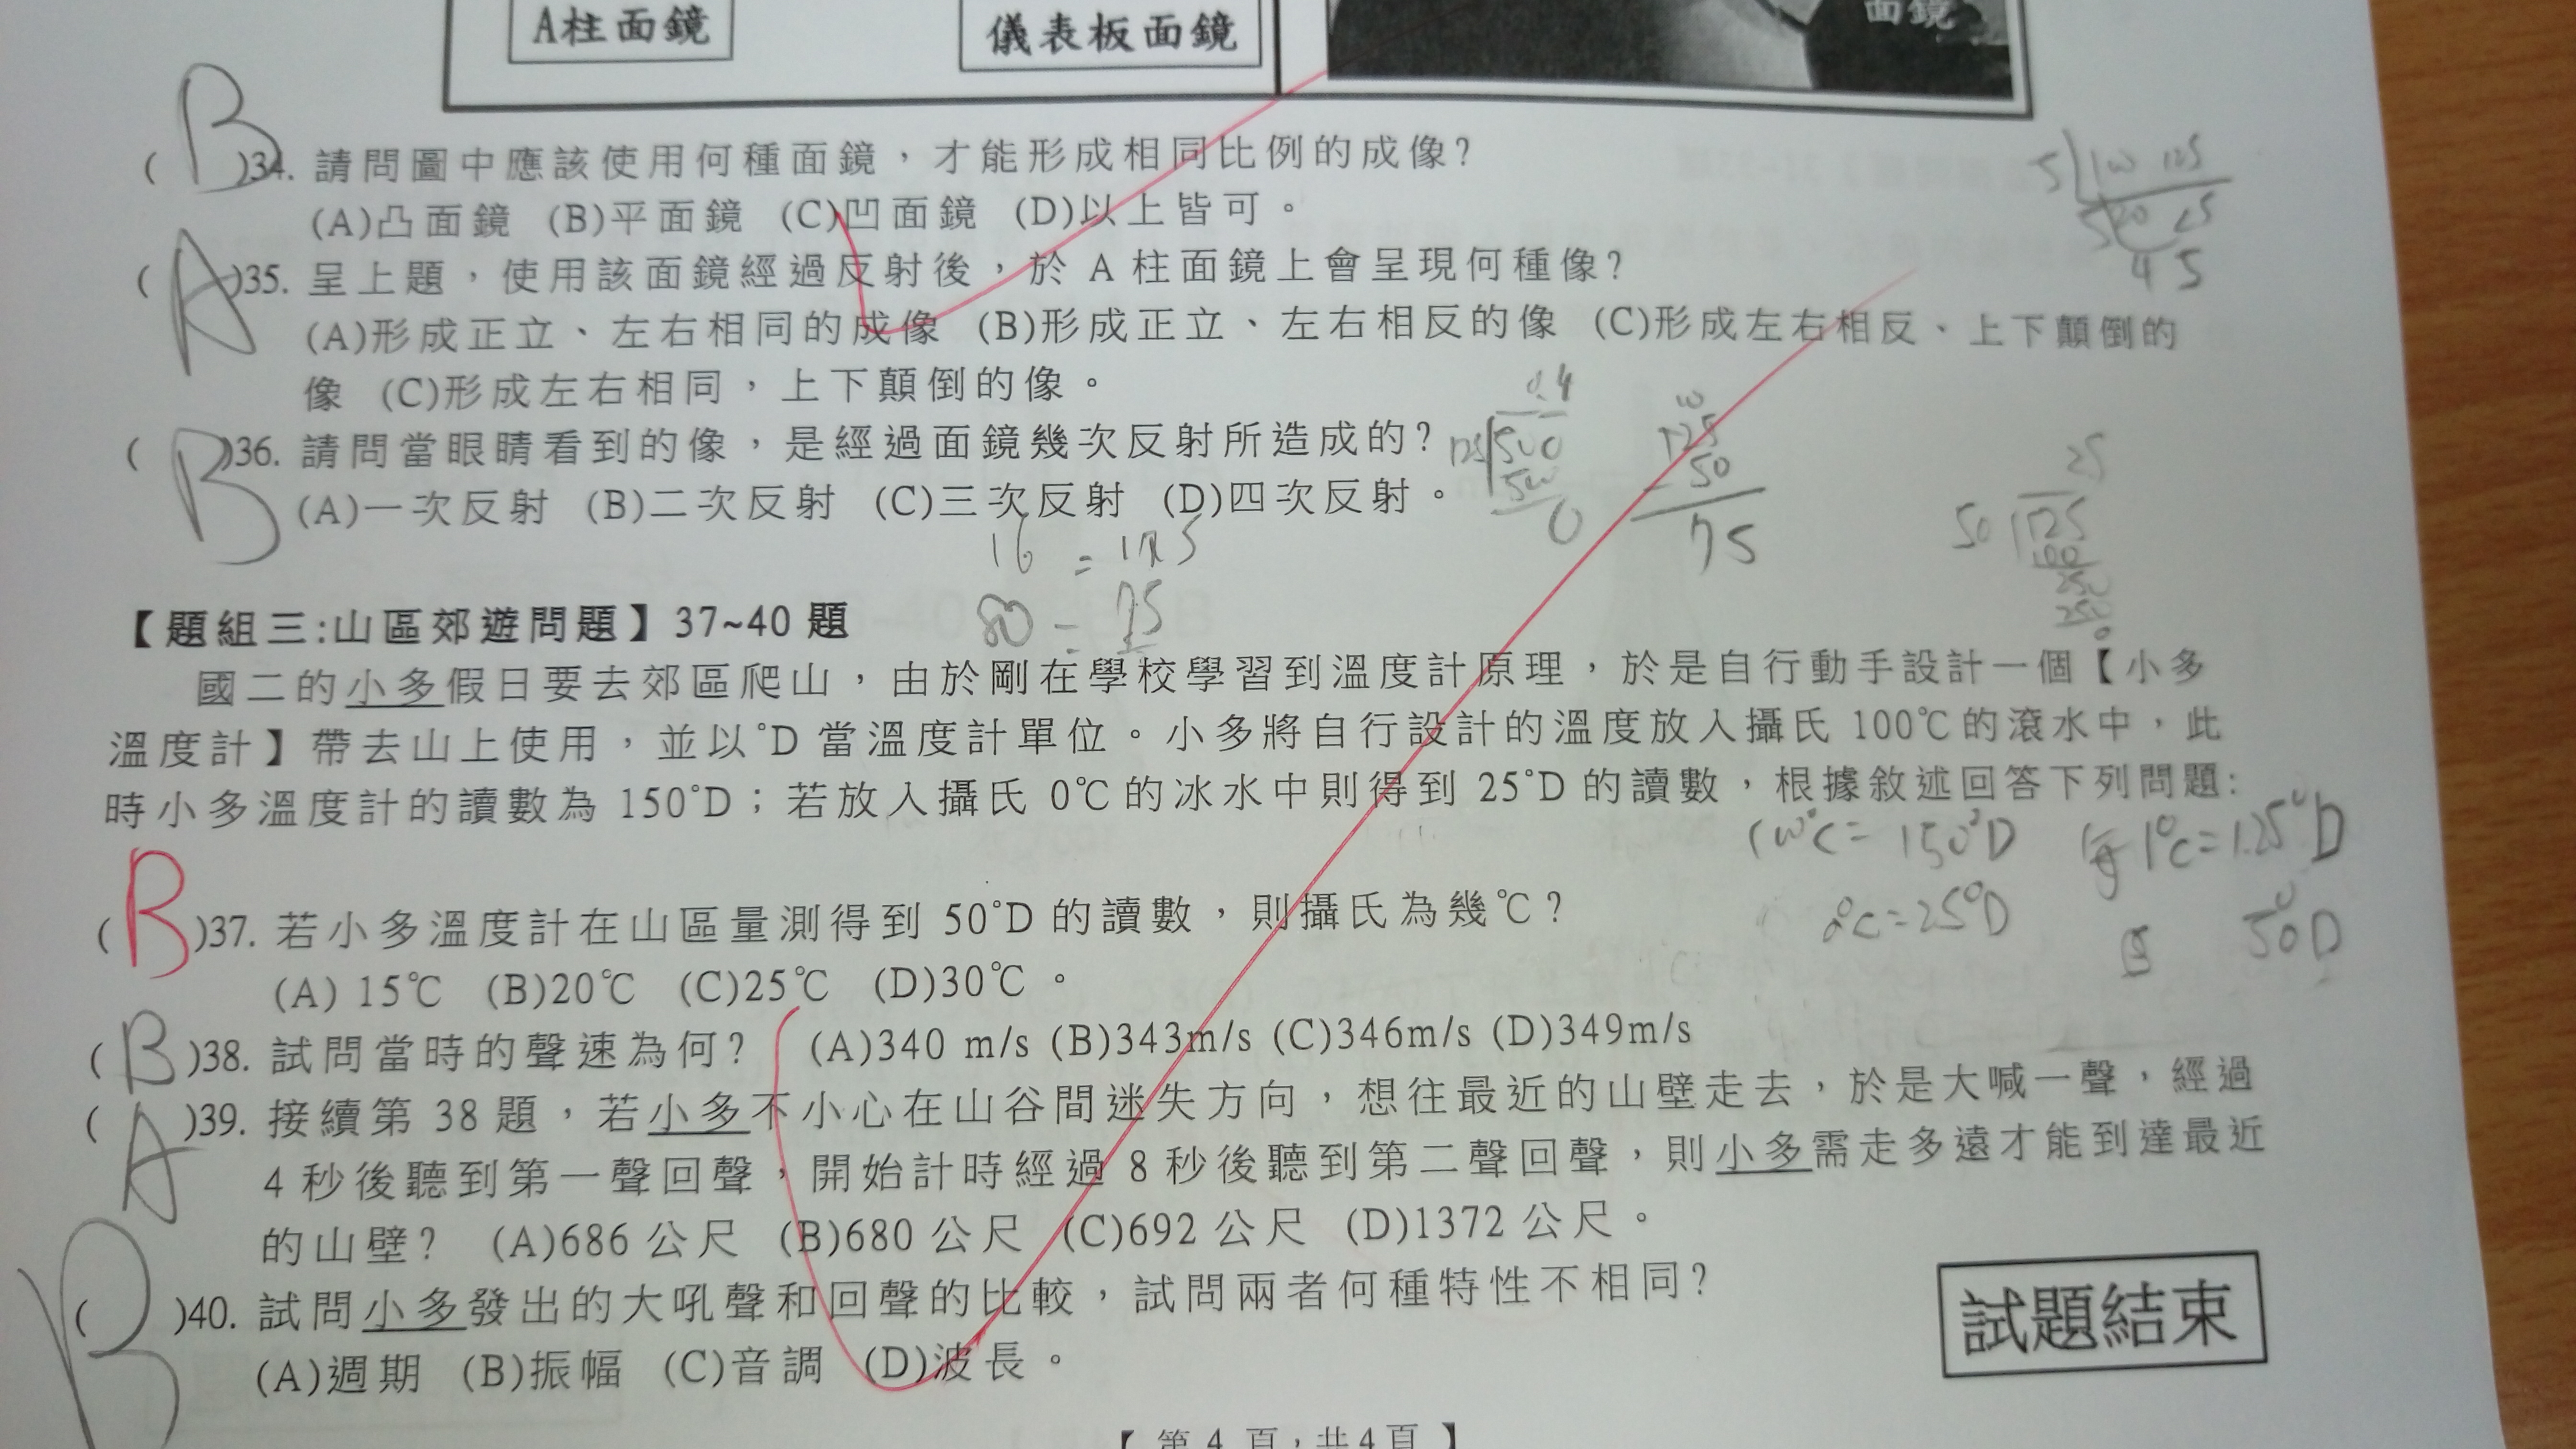 A柱面鏡
儀表板面鏡
面鏡
( B )34. 請問圖中應該使用何種面鏡，才能形成相同比例的成像?
(A)凸面鏡 (B)平面鏡 (C)凹面鏡 (D)以上皆可。
( A )35. 呈上題，使用該面鏡經過反射後，於 A 柱面鏡上會呈現何種像?
(A)形成正立、左右相同的成像 (B)形成正立、左右相反的像 (C)形成左右相反、上下顛倒的
像 (C)形成左右相同，上下顛倒的像。
( B )36. 請問當眼睛看到的像，是經過面鏡幾次反射所造成的?
(A)一次反射 (B)二次反射 (C)三次反射 (D)四次反射。
5 100 125
5 20 25
4 5
0.4
125 500
500
0
125
- 50
75
25
50 125
100
250
250
0
16 =
80 = 75
【題組三:山區郊遊問題】37~40 題
國二的小多假日要去郊區爬山，由於剛在學校學習到溫度計原理，於是自行動手設計一個【小多
溫度計】帶去山上使用，並以°D 當溫度計單位。小多將自行設計的溫度放入攝氏 100℃的滾水中，此
時小多溫度計的讀數為 150°D；若放入攝氏 0℃的冰水中則得到 25°D 的讀數，根據敘述回答下列問題:
100°C = 150°D 每1°C = 1.25°D
0°C = 25°D 50°D
( B )37. 若小多溫度計在山區量測得到 50°D 的讀數，則攝氏為幾℃?
(A) 15℃ (B)20℃ (C)25℃ (D)30℃。
( B )38. 試問當時的聲速為何? (A)340 m/s (B)343m/s (C)346m/s (D)349m/s
( A )39. 接續第 38 題，若小多不小心在山谷間迷失方向，想往最近的山壁走去，於是大喊一聲，經過
4 秒後聽到第一聲回聲，開始計時經過 8 秒後聽到第二聲回聲，則小多需走多遠才能到達最近
的山壁? (A)686 公尺 (B)680 公尺 (C)692 公尺 (D)1372 公尺。
( B )40. 試問小多發出的大吼聲和回聲的比較，試問兩者何種特性不相同?
(A)週期 (B)振幅 (C)音調 (D)波長。
試題結束
【 第 4 頁，共4頁 】